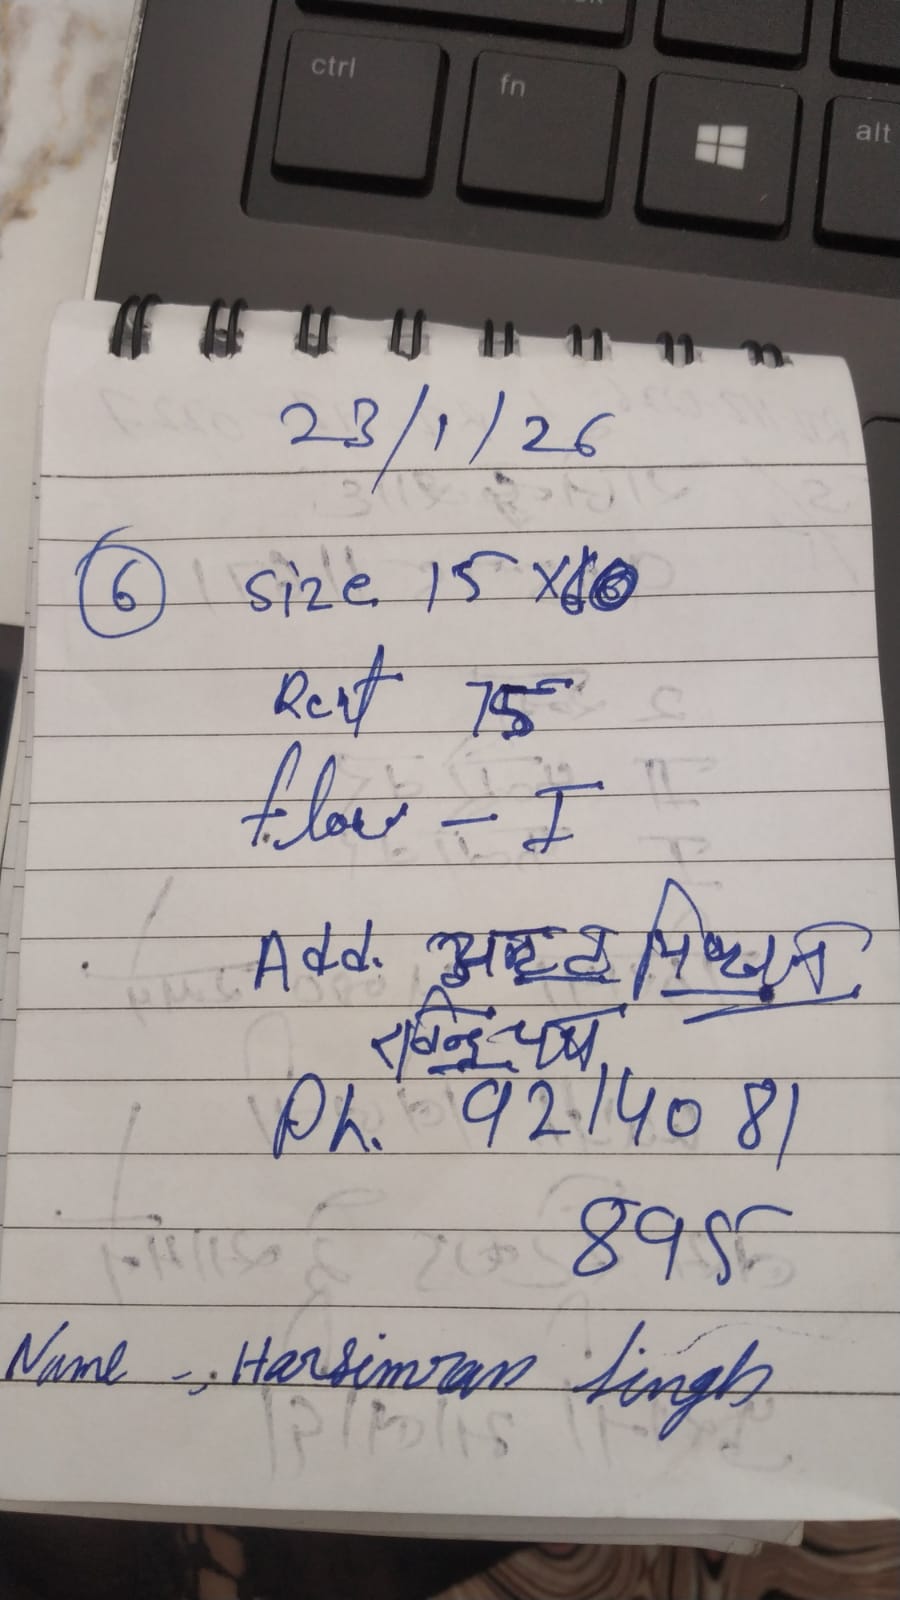 ctrl
fn
alt
23/1/26
6 Size 15 x
Rent 75
flow - I
Add.
रविन्द्र पथ
Ph. 92140 81
895
Name -, Harsimran Singh